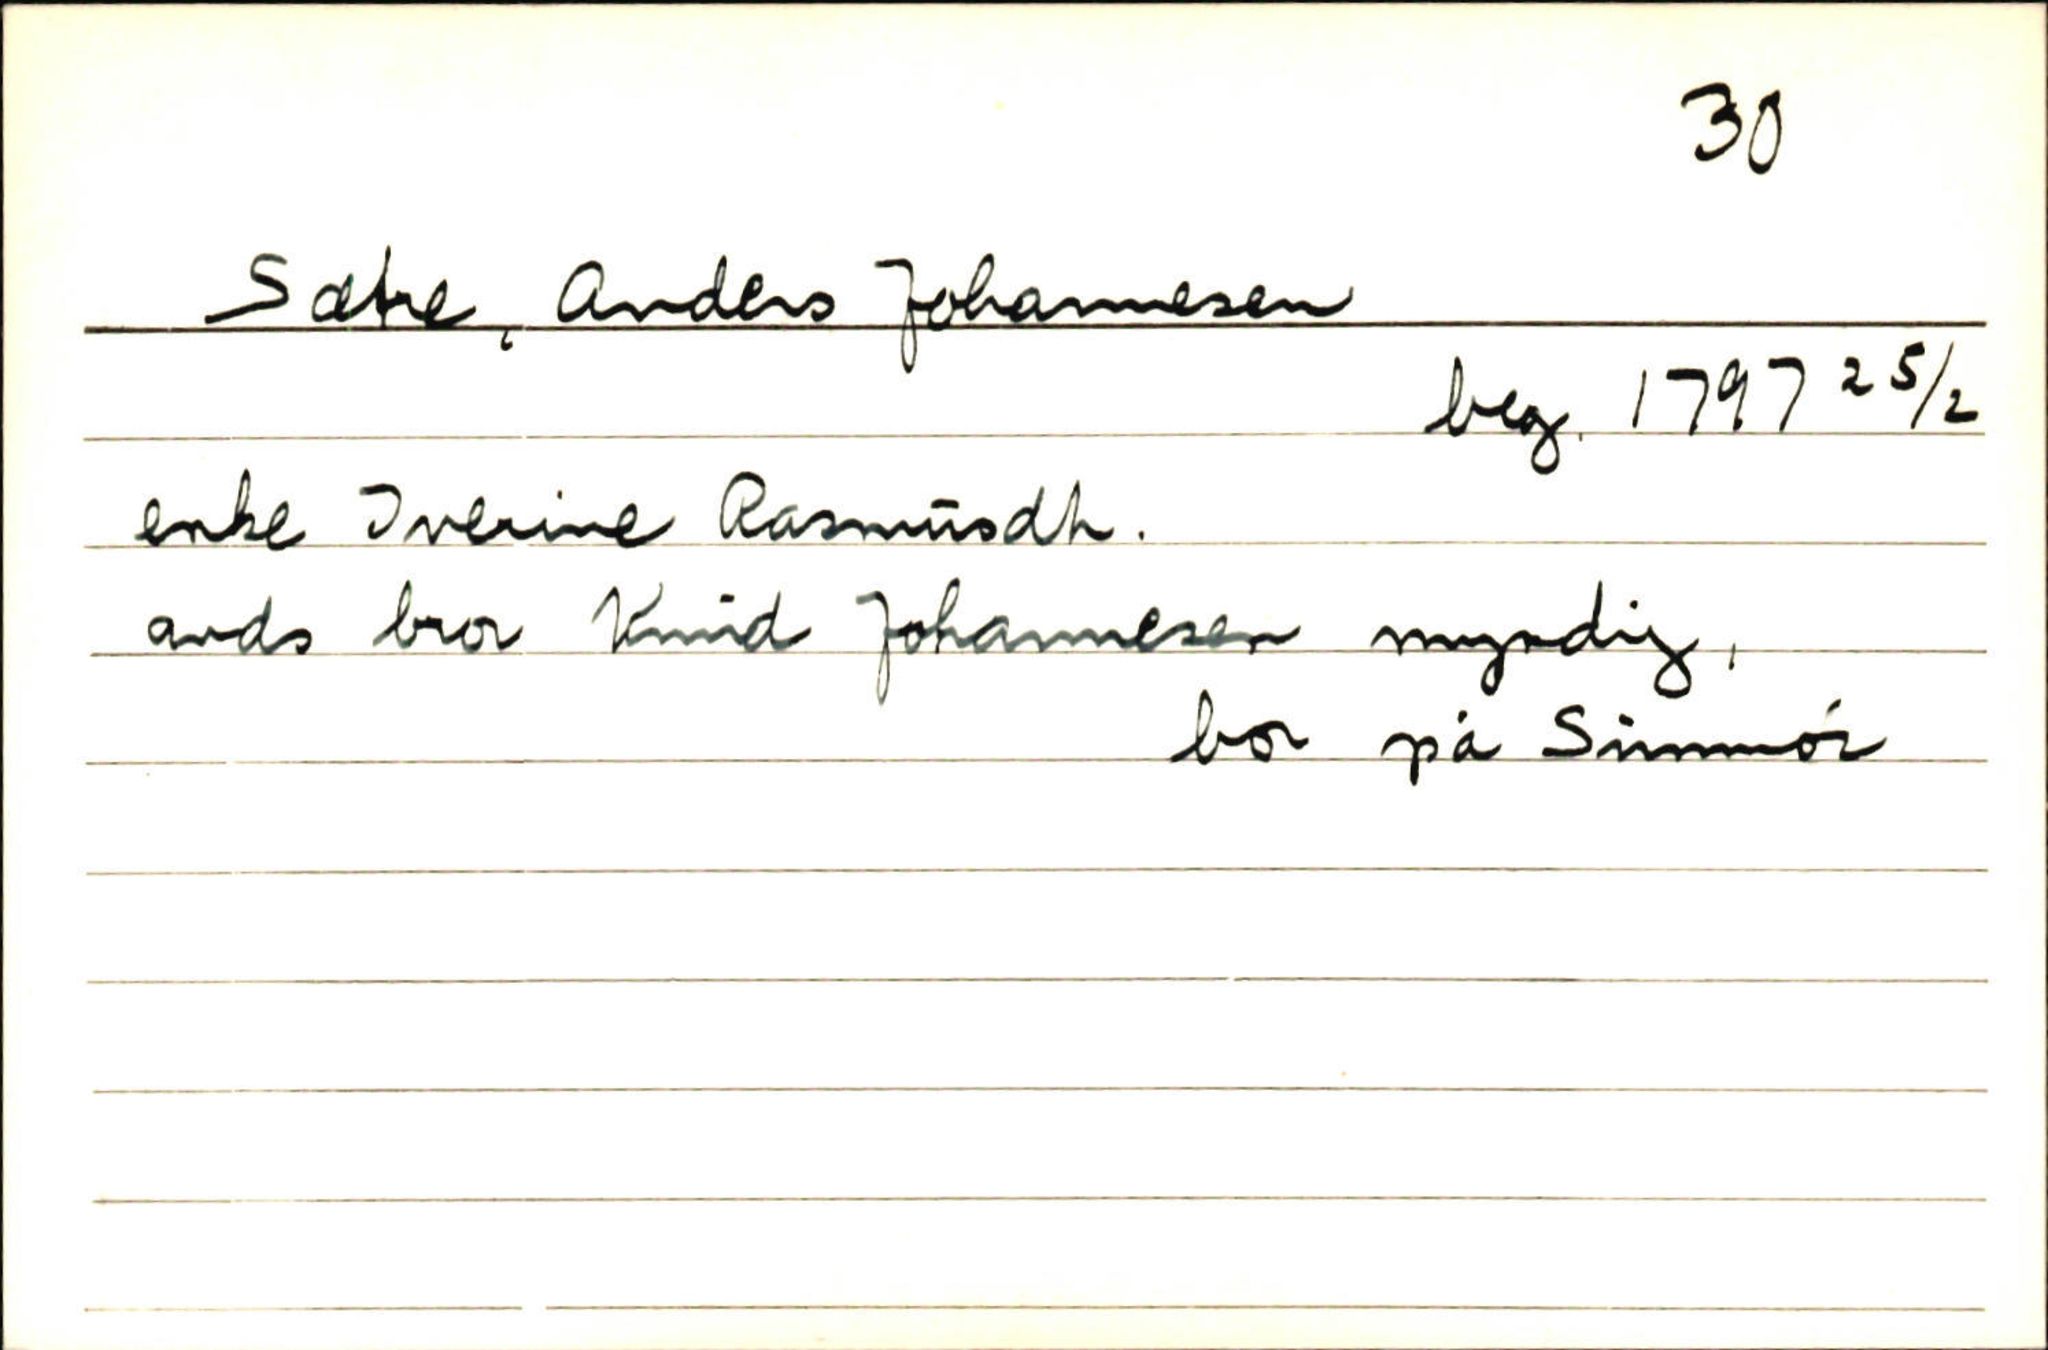 30
Sætre, Anders Johannesen
beg. 1797 25/2
enke Iverine Rasmusdh.
avds bror Knud Johannesen myndig,
bor på Sunmör